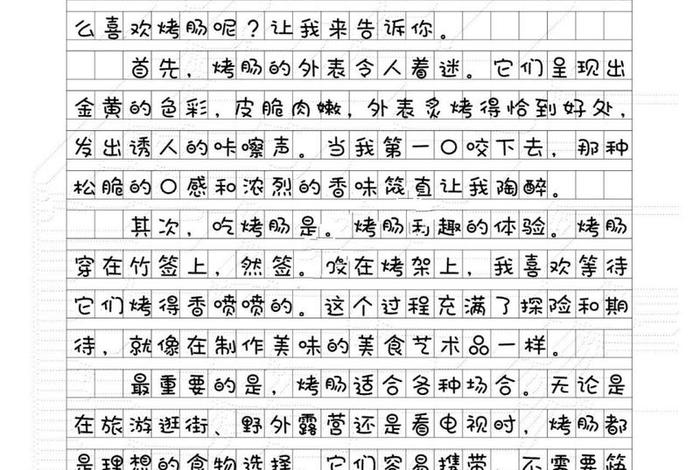 么喜欢烤肠呢？让我来告诉你。
首先，烤肠的外表令人着迷。它们呈现出
金黄的色彩，皮脆肉嫩，外表炙烤得恰到好处，
发出诱人的咔嚓声。当我第一口咬下去，那种
松脆的口感和浓烈的香味简直让我陶醉。
其次，吃烤肠是。烤肠有趣的体验。烤肠
穿在竹签上，然签。在烤架上，我喜欢等待
它们烤得香喷喷的。这个过程充满了探险和期
待，就像在制作美味的美食艺术品一样。
最重要的是，烤肠适合各种场合。无论是
在旅游逛街、野外露营还是看电视时，烤肠都
是理想的食物选择。它们容易携带，不需要